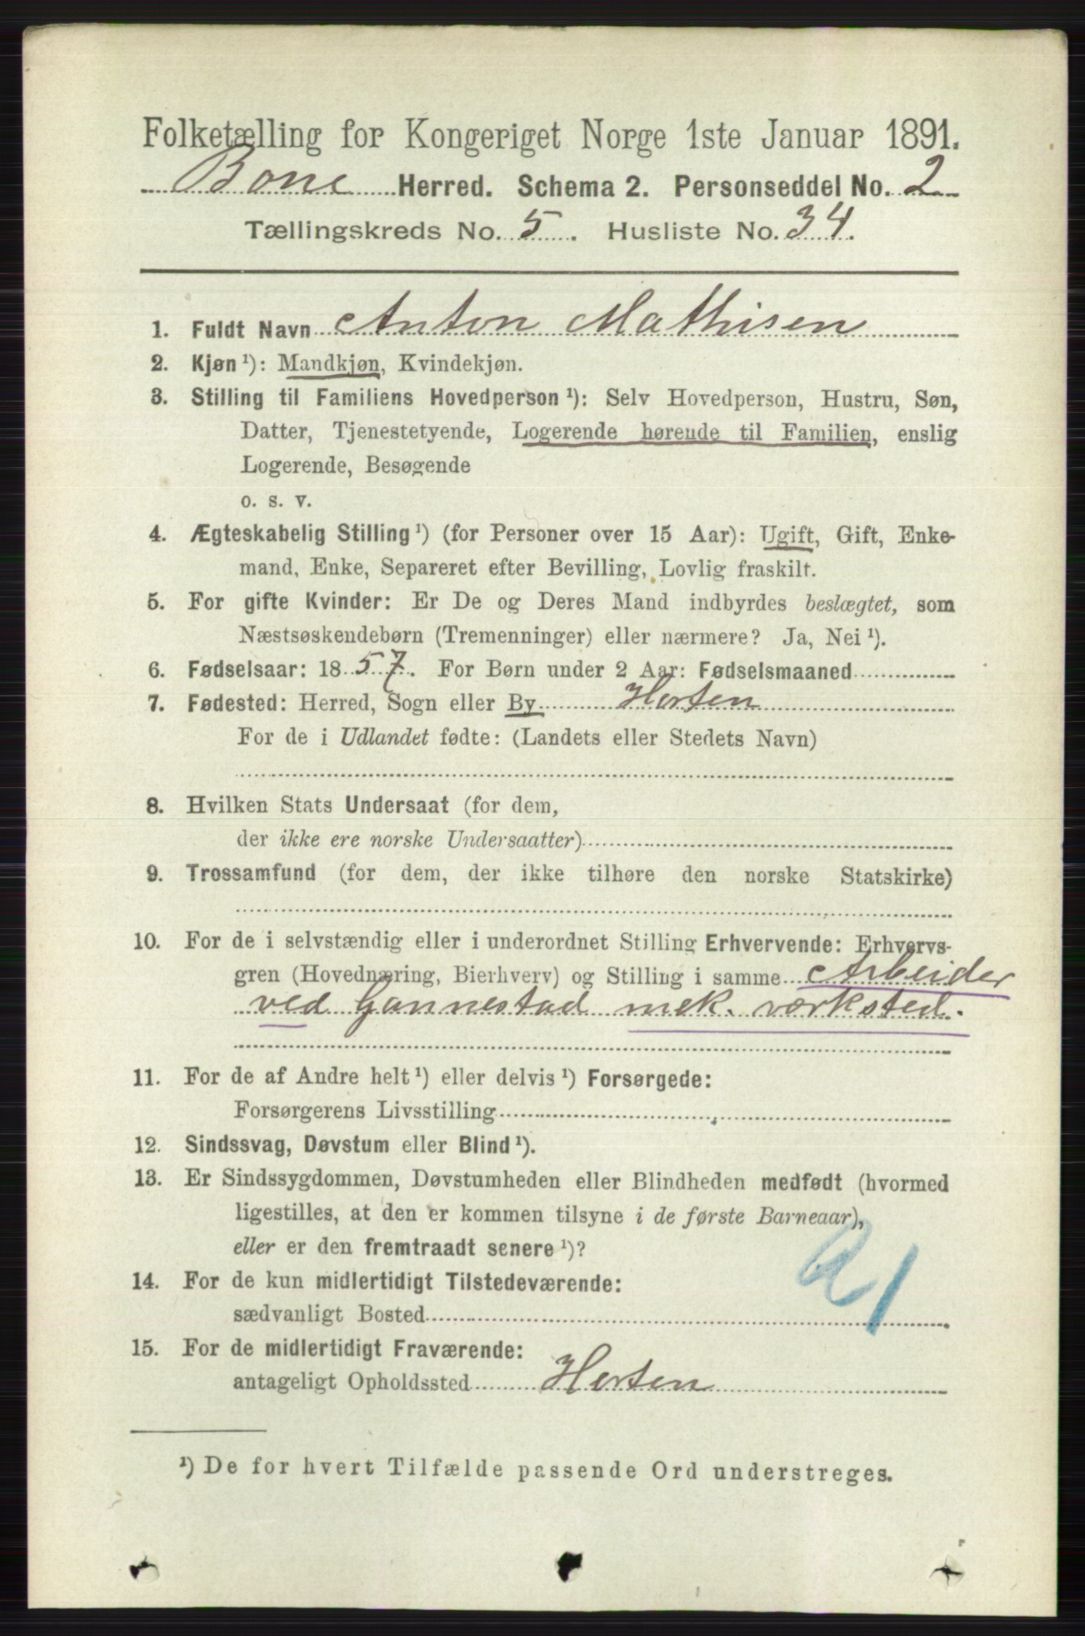 Folketælling for Kongeriget Norge 1ste Januar 1891.
Borre Herred. Schema 2. Personseddel No. 2
Tællingskreds No. 5. Husliste No. 34.
1. Fuldt Navn Anton Mathisen
2. Kjøn ¹): Mandkjøn, Kvindekjøn.
3. Stilling til Familiens Hovedperson ¹): Selv Hovedperson, Hustru, Søn,
Datter, Tjenestetyende, Logerende hørende til Familien, enslig
Logerende, Besøgende
o. s. v.
4. Ægteskabelig Stilling ¹) (for Personer over 15 Aar): Ugift, Gift, Enke-
mand, Enke, Separeret efter Bevilling, Lovlig fraskilt.
5. For gifte Kvinder: Er De og Deres Mand indbyrdes beslægtet, som
Næstsøskendebørn (Tremenninger) eller nærmere? Ja, Nei ¹).
6. Fødselsaar: 1857. For Børn under 2 Aar: Fødselsmaaned
7. Fødested: Herred, Sogn eller By Horten
For de i Udlandet fødte: (Landets eller Stedets Navn)
8. Hvilken Stats Undersaat (for dem,
der ikke ere norske Undersaatter)
9. Trossamfund (for dem, der ikke tilhøre den norske Statskirke)
10. For de i selvstændig eller i underordnet Stilling Erhvervende: Erhvervs-
gren (Hovednæring, Bierhverv) og Stilling i samme Arbeider
ved Gannestad mek. værksted.
11. For de af Andre helt ¹) eller delvis ¹) Forsørgede:
Forsørgerens Livsstilling
12. Sindssvag, Døvstum eller Blind ¹).
13. Er Sindssygdommen, Døvstumheden eller Blindheden medfødt (hvormed
ligestilles, at den er kommen tilsyne i de første Barneaar),
eller er den fremtraadt senere ¹)?
14. For de kun midlertidigt Tilstedeværende:
sædvanligt Bosted
15. For de midlertidigt Fraværende:
antageligt Opholdssted Horten
¹) De for hvert Tilfælde passende Ord understreges.